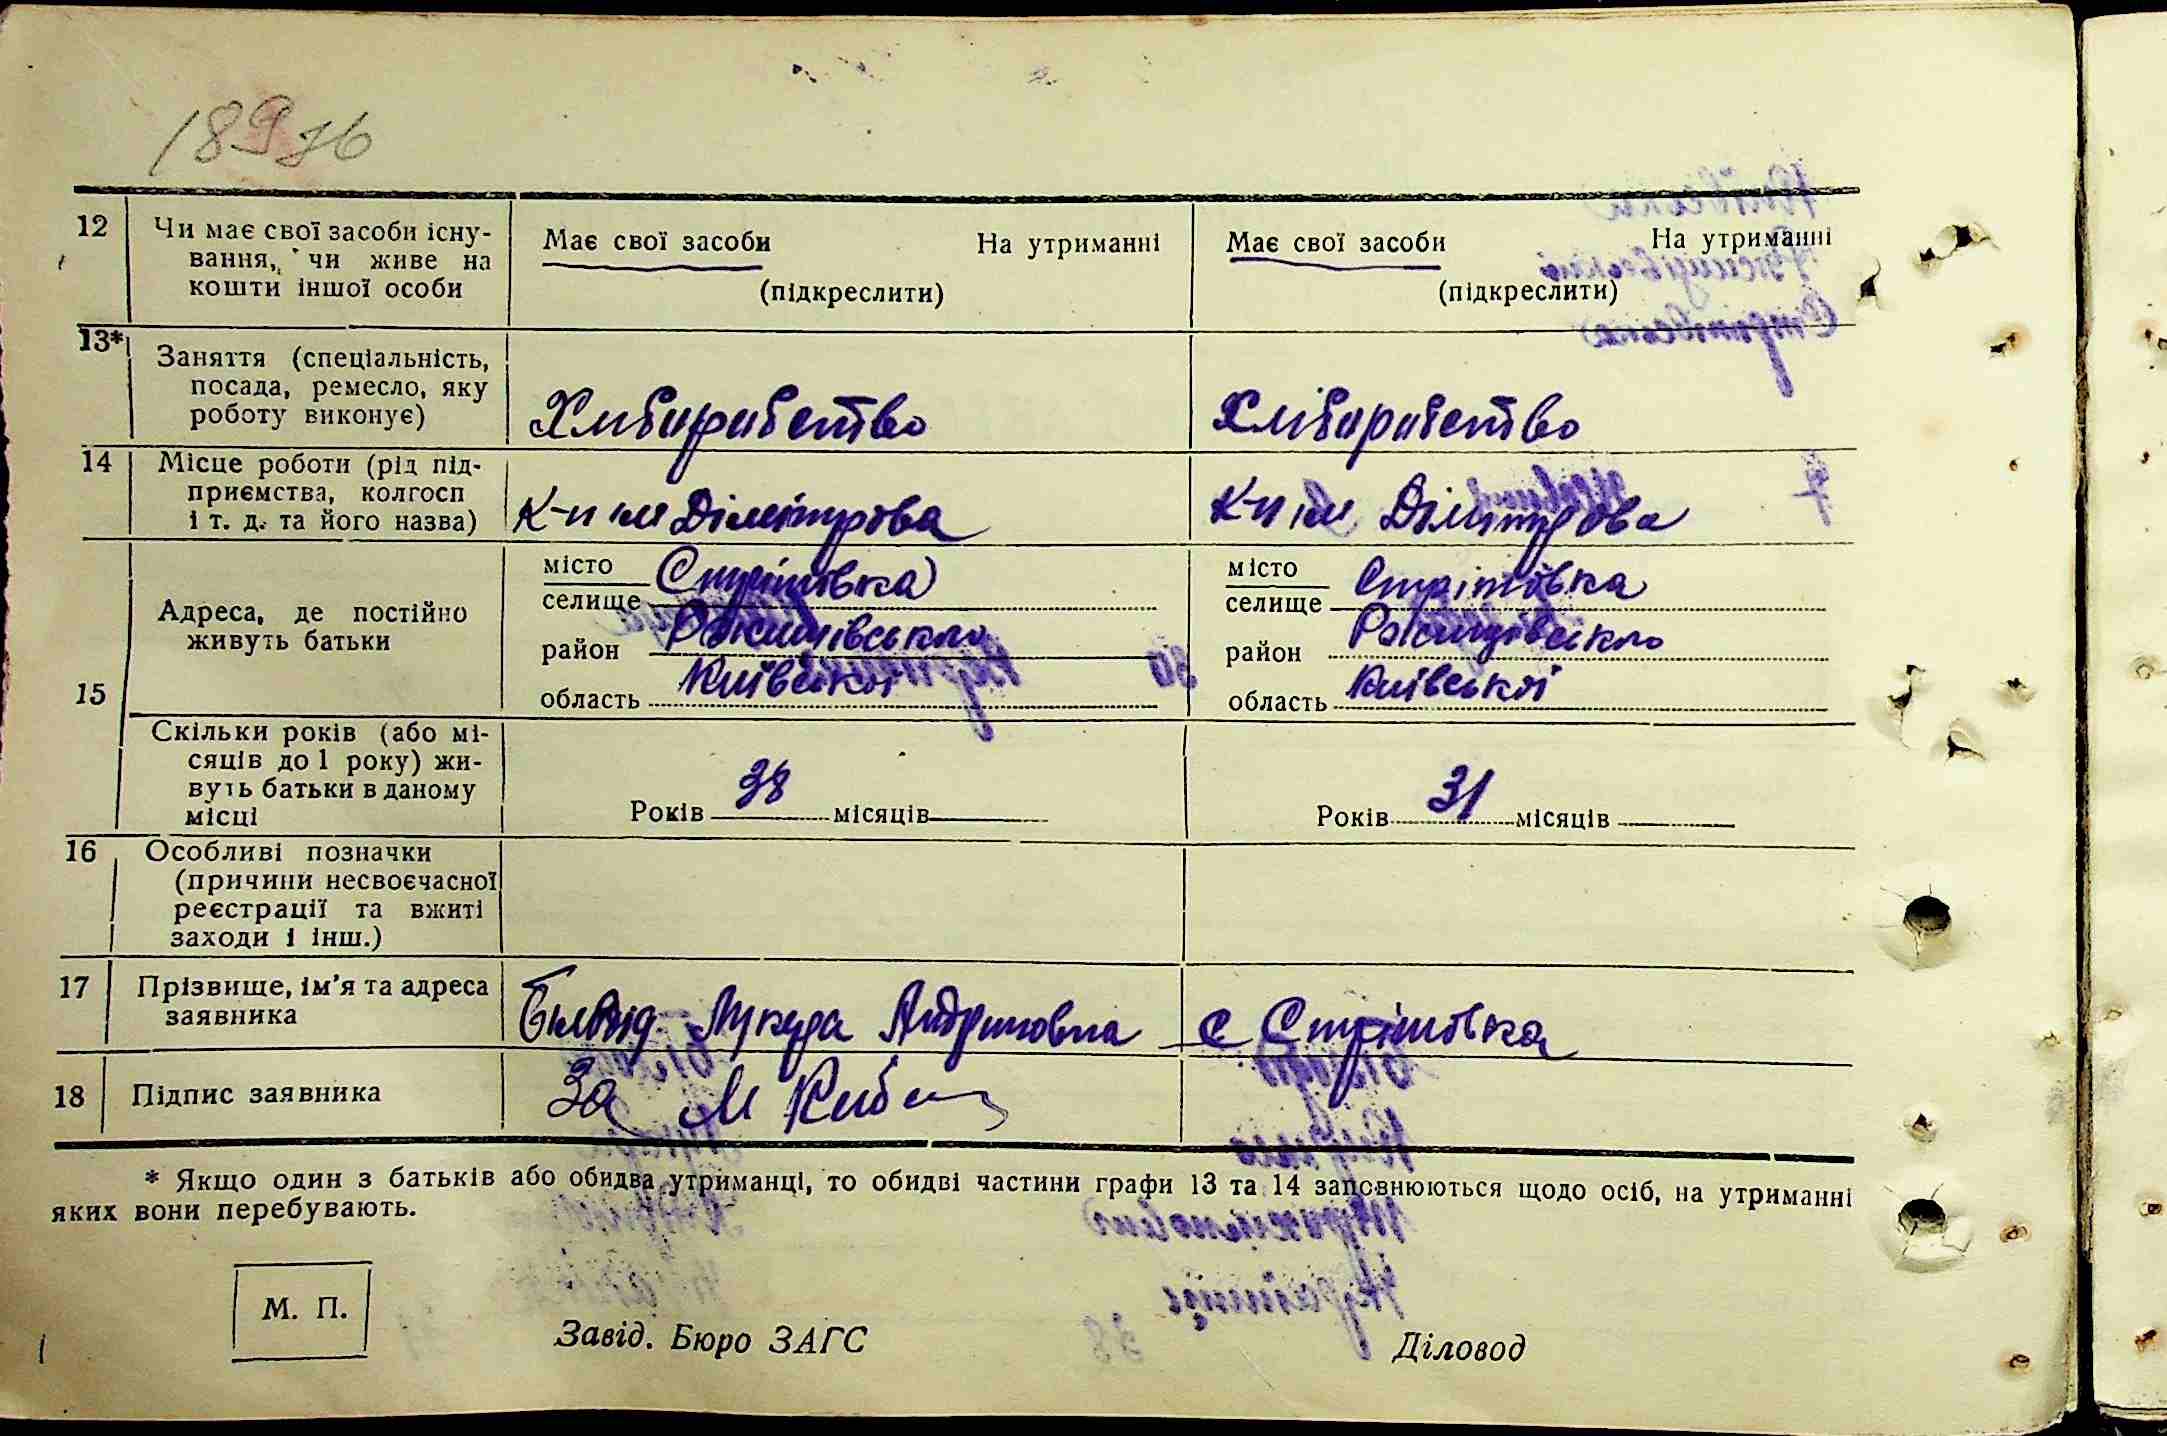 189 зв
12 Чи має свої засоби існу-
вання, чи живе на
кошти іншої особи
Має свої засоби На утриманні
(підкреслити)
Має свої засоби На утриманні
(підкреслити)
13* Заняття (спеціальність,
посада, ремесло, яку
роботу виконує)
Хліборобство
Хліборобство
14 Місце роботи (рід під-
приємства, колгосп
і т. д. та його назва)
К-п ім Дімітрова
К-п ім Дімітрова
15 Адреса, де постійно
живуть батьки
місто
селище Стрітовка
район Ржищівського
область Київської
місто
селище Стрітовка
район Ржищівського
область Київської
Скільки років (або мі-
сяців до 1 року) жи-
вуть батьки в даному
місці
Років 38 місяців
Років 31 місяців
16 Особливі позначки
(причини несвоєчасної
реєстрації та вжиті
заходи і інш.)
17 Прізвище, ім’я та адреса
заявника
Лукера Андріновна с Стрітовка
18 Підпис заявника
За М
* Якщо один з батьків або обидва утриманці, то обидві частини графи 13 та 14 заповнюються щодо осіб, на утриманні
яких вони перебувають.
М. П.
Завід. Бюро ЗАГС
Діловод